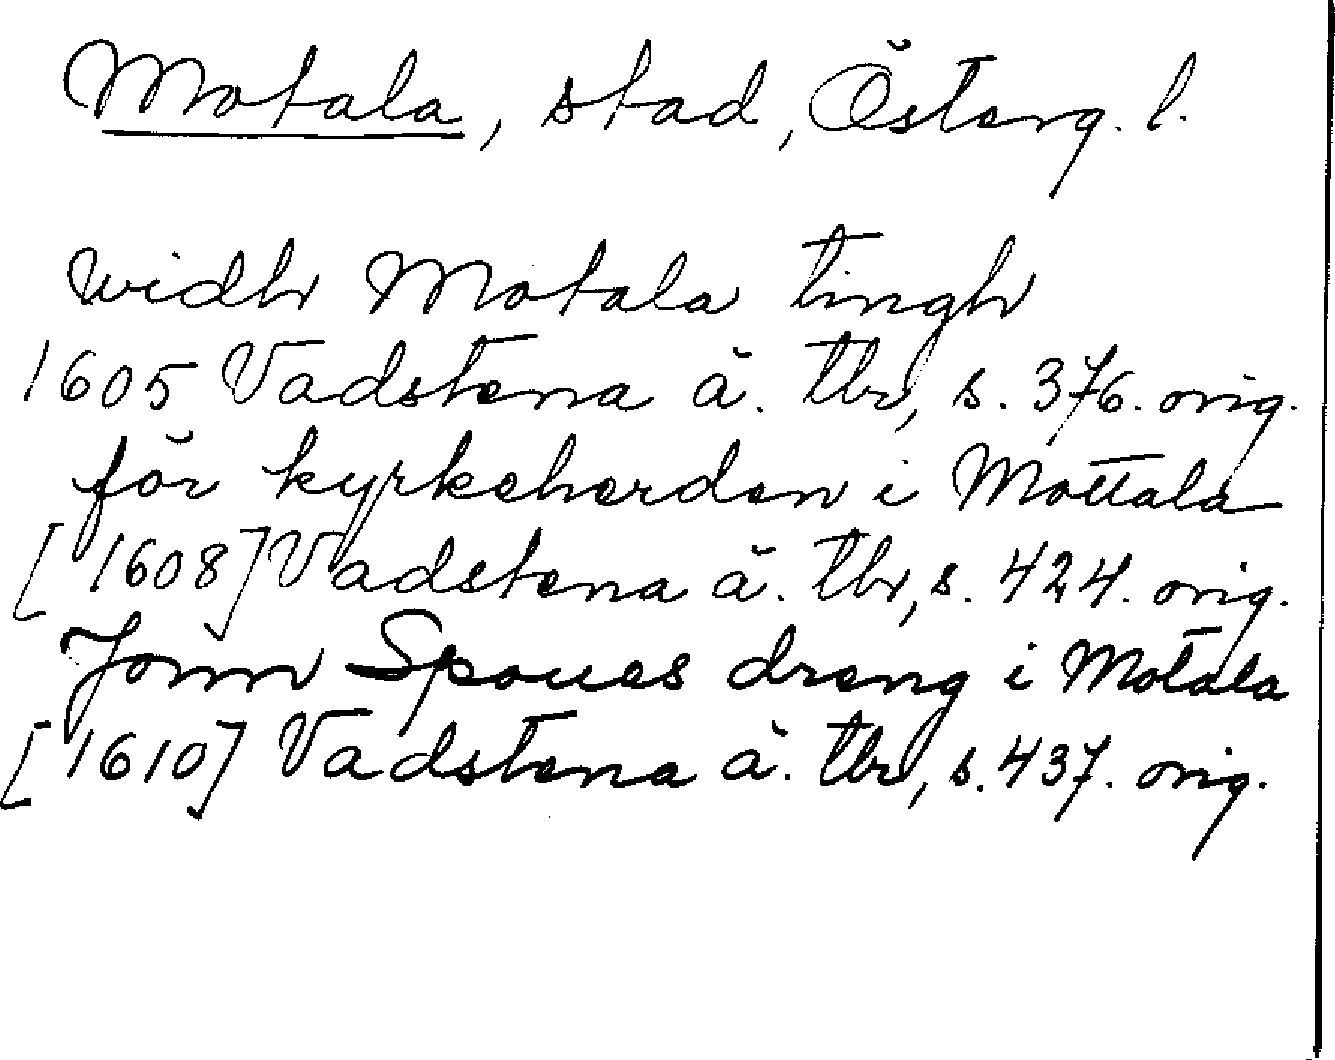 Motala, stad, Österg. l.
widh Motala tingh
1605 Vadstena ä. tb, s. 376. orig.
för kyrkeherden i Mottala
[1608] Vadstena ä. tb, s. 424. orig.
Jonn Spoues dreng i Motala
[1610] Vadstena ä. tb, s. 437. orig.